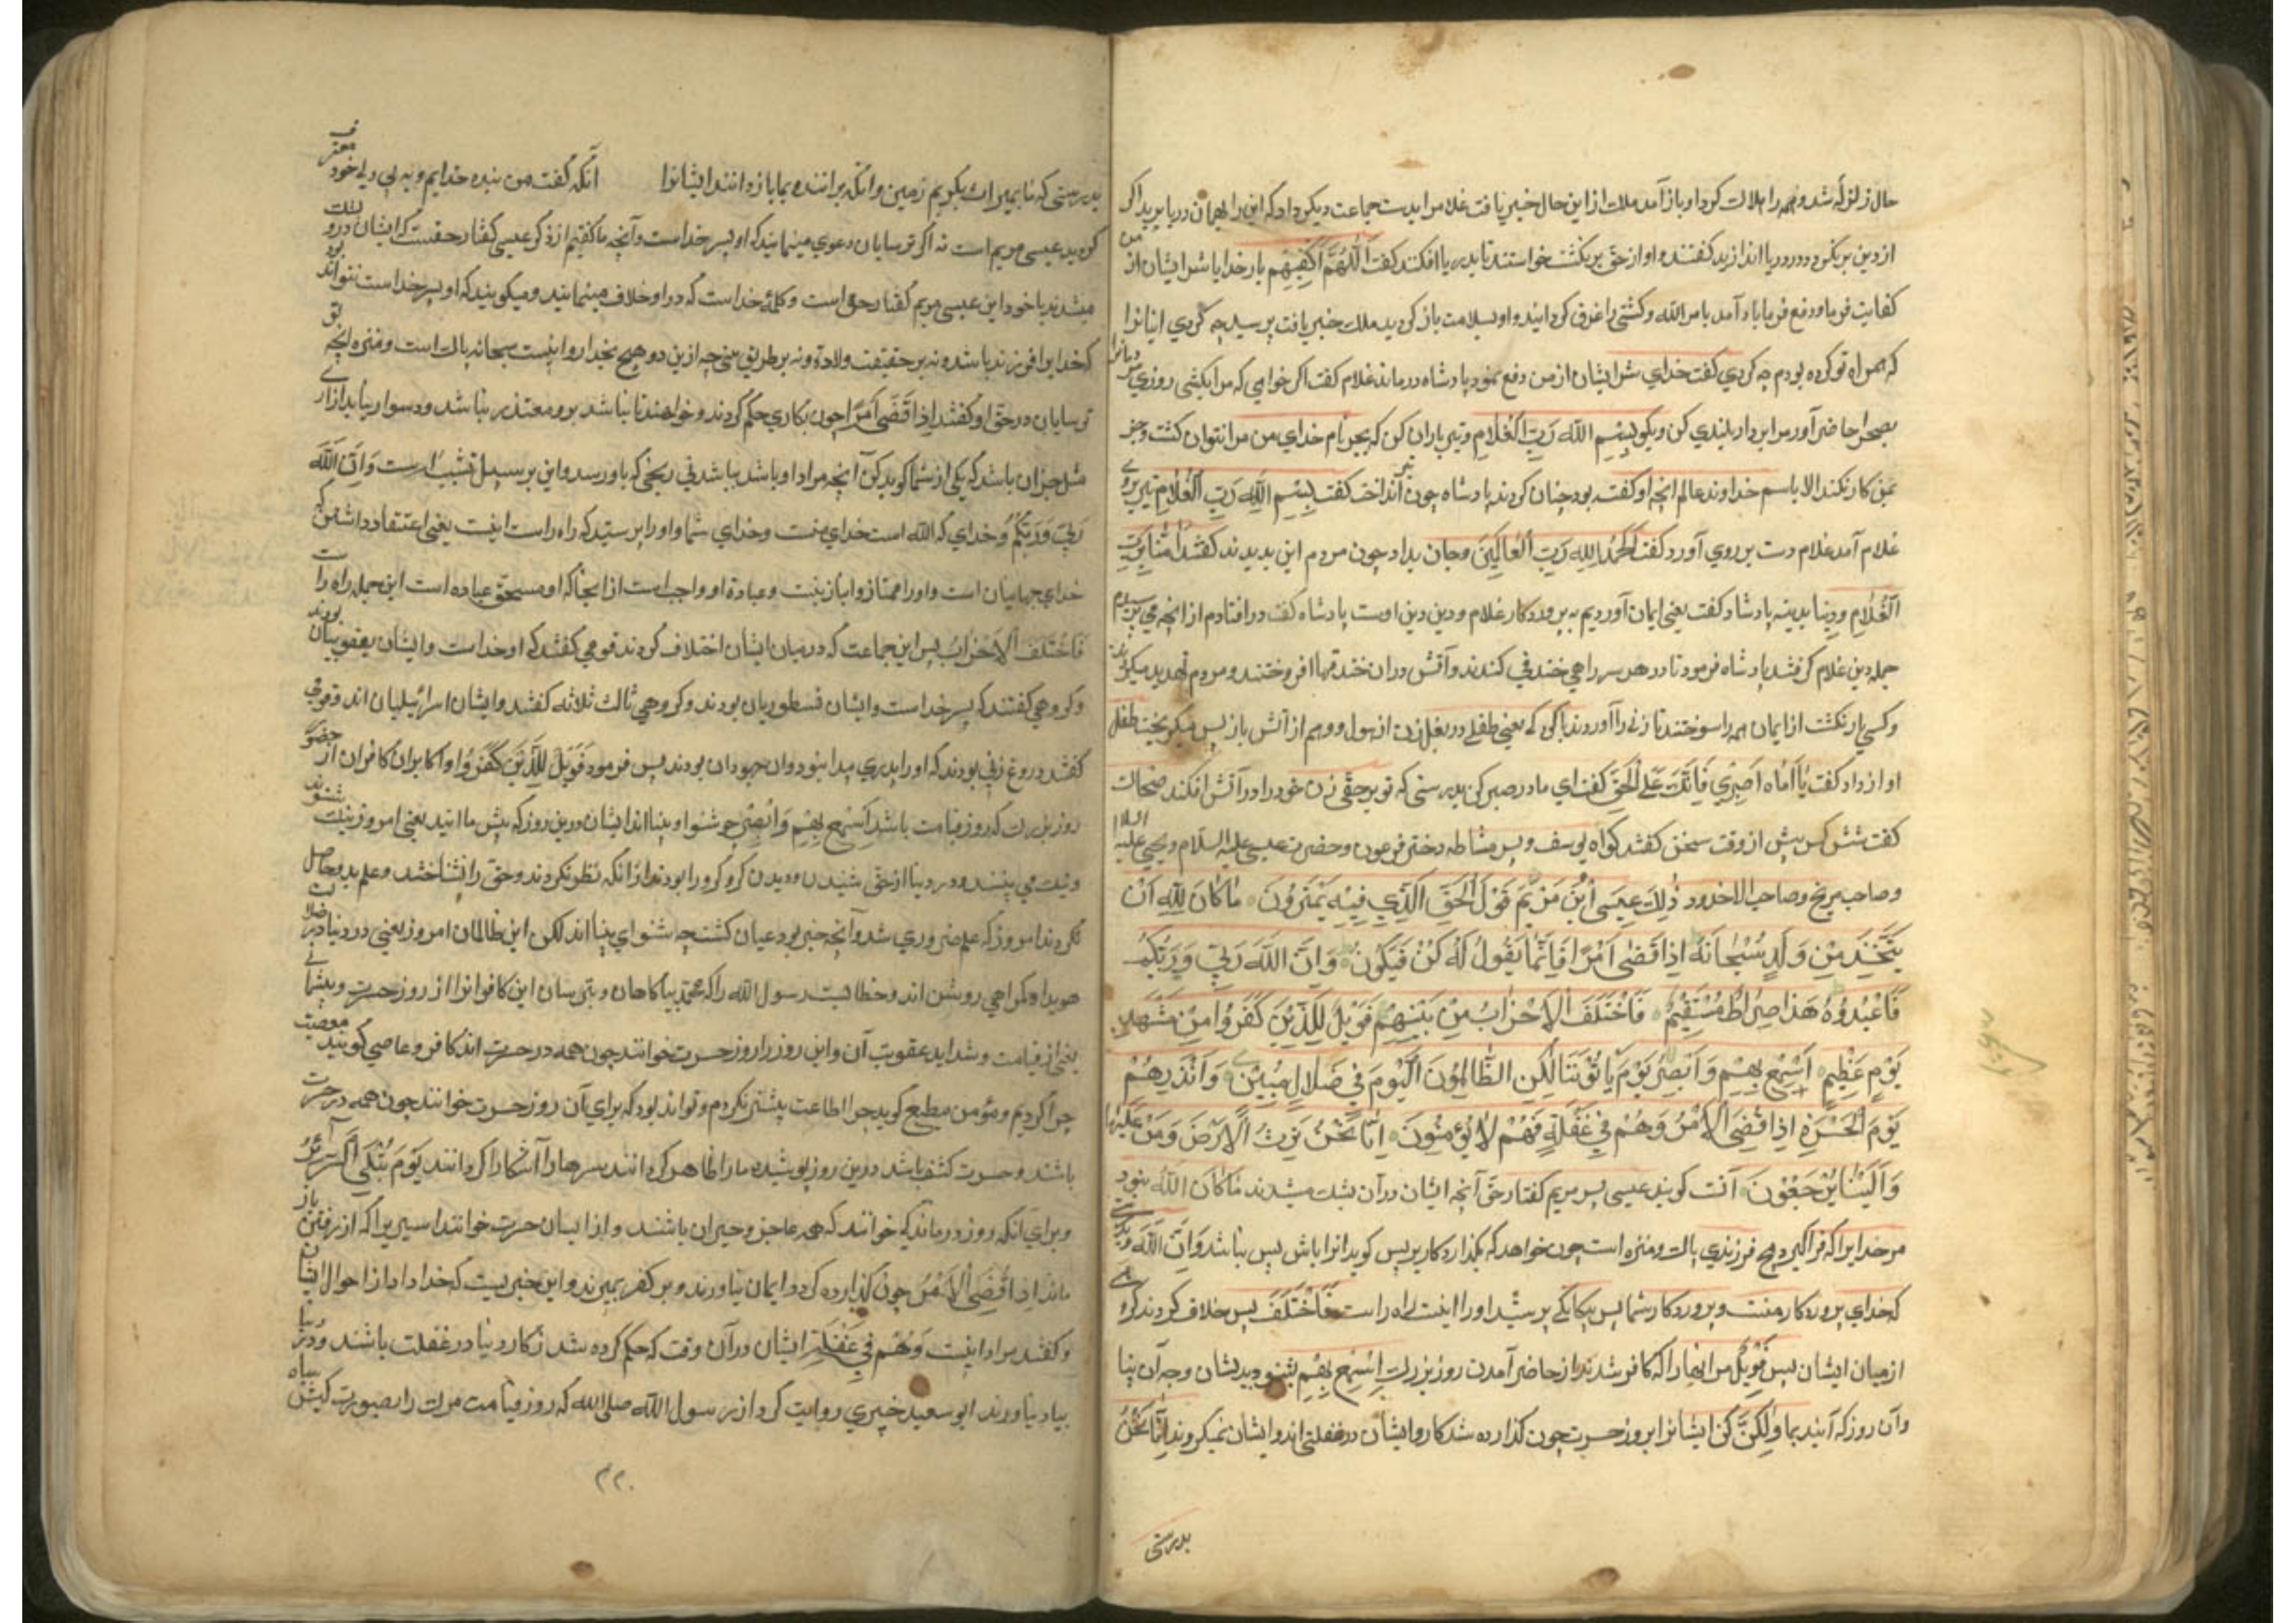 حال زلزله شد و همه را هلاک کرد او باز آمد ملک از این حال خبر یافت غلام را بدست جماعت دیگر داد که این را بمیان دریا برید اگر
از دین برنگردد در دریا اندازید کفتند و او از حق برنگشت خواستند تا بدریا افکنند کفت اَللّٰهُمَّ اکْفِنِیهِم بار خدایا شر ایشان از من
کفایت فرما و دفع فرما باد آمد بامر الله و کشتی را غرق کردانید و او بسلامت باز کردید ملک خبر یافت پرسید چه کردی اینانرا
که همراه تو کرده بودم چه کردی کفت خدای شر ایشان از من دفع نمود پادشاه درماند غلام کفت اکر خواهی که مرا بکشی روزی مردمانرا
بصحرا حاضر آور مرا بر دار بلندی کن و بکو بِسْمِ اللهِ رَبِّ الْغُلامِ و تیرباران کن که بجز نام خدای من مرا نتوان کشت و جز
بمن کار نکند الا باسم خداوند عالم انچه او کفته بود چنان کردند پادشاه چون تیر انداخت کفت بِسْمِ اللهِ رَبِّ الْغُلامِ تیر بروی
غلام آمد غلام دست بر روی آورد کفت اَلْحَمْدُ لِلّهِ رَبِّ الْعالَمِینَ و جان بداد چون مردم این بدیدند کفتند اٰمَنّا بِرَبِّ
الْغُلامِ و دیننا بدینه پادشاه کفت یعنی ایمان آوردیم به پروردکار غلام و دین دین اوست پادشاه کفت در افتادم از انچه می‌ترسیدم
جمله دین غلام کرفتند پادشاه فرمود تا در هر سر راهی خندقی کندند و آتش در ان خندقها افروختند و مردم تهدید میکردند
و کسی باز نکشت از ایمان همه را سوختند تا زنی را آوردند با کودکی یعنی طفلی در بغل زن از هول و وهم از آتش باز پس میکریخت طفل
اواز داد کفت یا اُمّاه اصبری فَاِنَّکِ عَلَی الْحَقِّ کفت ای مادر صبر کن بدرستی که تو بر حقی زن خود را در آتش افکند ضحاک
کفت شش کس پیش از وقت سخن کفتند کواه یوسف و پسر مشاطه دختر فرعون و حضرت عیسی علیه السلام و یحیی علیه السلام
و صاحب جریج و صاحب الاخدود ذٰلِکَ عیسَی ابْنُ مَرْیَمَ قَوْلَ الْحَقِّ الَّذی فیهِ یَمْتَرُونَ ماٰ کاٰنَ لِلّٰهِ اَنْ
یَتَّخِذَ مِنْ وَلَدٍ سُبْحانَهُ اِذاٰ قَضیٰ اَمْرًا فَاِنَّماٰ یَقُولُ لَهُ کُنْ فَیَکُونُ وَاِنَّ اللهَ رَبّی وَرَبُّکُمْ
فَاعْبُدُوهُ هَذٰا صِراٰطٌ مُسْتَقیمٌ فَاخْتَلَفَ الْاَحْزٰابُ مِنْ بَیْنِهِمْ فَوَیْلٌ لِلَّذینَ کَفَرُوا مِنْ مَشْهَدِ
یَوْمٍ عَظیمٍ اَسْمِعْ بِهِمْ وَاَبْصِرْ یَوْمَ یَأْتُونَنٰا لٰکِنِ الظّٰالِمُونَ الْیَوْمَ فی ضَلالٍ مُبینٍ وَاَنْذِرْهُمْ
یَوْمَ الْحَسْرَةِ اِذْ قُضِیَ الْاَمْرُ وَهُمْ فی غَفْلَةٍ وَهُمْ لاٰ یُؤْمِنُونَ اِنّا نَحْنُ نَرِثُ الْاَرْضَ وَمَنْ عَلَیْهٰا
وَاِلَیْنٰا یُرْجَعُونَ آنست کویند عیسی پسر مریم کفتار حق آنچه ایشان در آن بشک میشدند مٰا کٰانَ اللهُ نبود
مر خدایرا که فرا کیرد هیچ فرزندی پاکست و منزه است چون خواهد که بکذارد کار پس کوید انرا باش پس بباشد وَاِنَّ اللهَ رَبّی
که خدای پروردکار منست و پروردکار شما پس بیکانکی پرستید او را اینست راه راست فَاخْتَلَفَ پس خلاف کردند کروهی
از میان ایشان پس فَوَیْلٌ مر انها را که کافر شدند از حاضر آمدن روز بزرک اَسْمِعْ بِهِمْ بشنو بدیشان و چه آن بینا
و آن روز که آیند بما وَلٰکِنْ کن ایشانرا بروز حسرت چون کذارده شد کار و ایشان در غفلتی اند و ایشان نمیکروند اِنّا نَحْنُ
بدرستی
بدرستی که ما بمیراث بکیریم زمین و انکه بر انند و بما باز دانند ایشانرا انکه کفت من بنده خدایم و به بی دیاء خود معترف
کردید عیسی مریم است نه اکر ترسایان دعوی مینمایند که او پسر خداست و آنچه ما کفتیم از ذکر عیسی کفتار حقست که ایشان در و بشک
میشدند یا خود این عیسی مریم کفتار حق است و کلمه خداست که در او خلاف مینمایند و میکویند که او پسر خداست نتواند بود
که خدایرا فرزند باشد و نه بر حقیقت ولادة و نه بر طریق تبنی چه ازین دو هیچ بخدا روا نیست سبحانه پاکست و منزه از آنچه
ترسایان در حق او کفتند اِذا قَضیٰ اَمْرًا چون بکاری حکم کردند و خواهند تا بباشد برو متعذر نباشد و دشوار نیاید از ارادة
مثل چنان باشد که یکی از شما کوید کن آنچه مراد او باشد بباشد بی رنجی که باو رسد و این بر سبیل تشبیه است وَاِنَّ اللهَ
رَبّی وَرَبُّکُمْ و خدای که الله است خدای منست و خدای شما و او را پرستید که راه راست اینست یعنی اعتقاد داشتن که
خدای جهانیان است و او را همتا و انباز نیست و عبادة او واجب است از انجا که او مستحق عباده است این جمله راه راست
فَاخْتَلَفَ الْاَحْزٰابُ پس این جماعت که در میان ایشان اختلاف کردند قومی کفتند که او خداست و ایشان یعقوبیان بودند
و کروهی کفتند که پسر خداست و ایشان نسطوریان بودند و کروهی ثالث ثلاثه کفتند و ایشان اسرائیلیان اند و قومی
کفتند دروغ زنی بودند که او را پدری پیدا نبود و ان جهودان بودند پس فرمود فَوَیْلٌ لِلَّذینَ کَفَرُوا وای بران کافران از حضور
روز بزرک که روز قیامت باشد اَسْمِعْ بِهِمْ وَاَبْصِرْ چه شنوا و بینا اند ایشان درین روز که پیش ما ایند یعنی امروز نیک شنوند
و نیک می بینند و در دنیا از حق شنیدن و دیدن کر و کور بودند از انکه نظر نکردند و حق را نشناختند و علم بدو حاصل
نکردند امروز که علم ضروری شد و آنچه خبر بود عیان کشت چه شنوا و بینا اند لکن این ظالمان امروز یعنی در دنیا در ضلالت
هویدا و کمراهی روشن اند و خطابست رسول الله را که محمد بیاکاهان و بترسان این کافرانرا از روز حسرت و پشیمانی
یعنی از قیامت و شداید عقوبت آن و این روز را روز حسرت خوانند چون همه در حسرت اند کافر و عاصی کویند معصیت
چرا کردیم و مؤمن مطیع کوید چرا اطاعت بیشتر نکردم و تواند بود که برای آن روز حسرت خوانند چون همه در حسرت
باشند و حسرت کشف باشد درین روز پوشیده ما را ظاهر کردانند سرها را آشکارا کردانند یَوْمَ تُبْلَی السَّرآئِرُ
و برای انکه روز درماندکی خوانند که همه عاجز و حیران باشند و از ایشان حسرت خوانند اسیریرا که از رفتن باز
ماند اِذْ قُضِیَ الْاَمْرُ چون کذارده کردد ایمان نیاورند و بر کفر بمیرند و این خبریست که خدا داد از احوال ایشان
و کفتند مراد اینست وَهُمْ فی غَفْلَةٍ ایشان در آن وقت که حکم کرده شد ز کار دنیا در غفلت باشند و در دنیا
بیاد نیاورند ابو سعید خدری روایت کرد از رسول الله صلی الله که روز قیامت مرک را بصورت کبش سیاه
۲۲۰